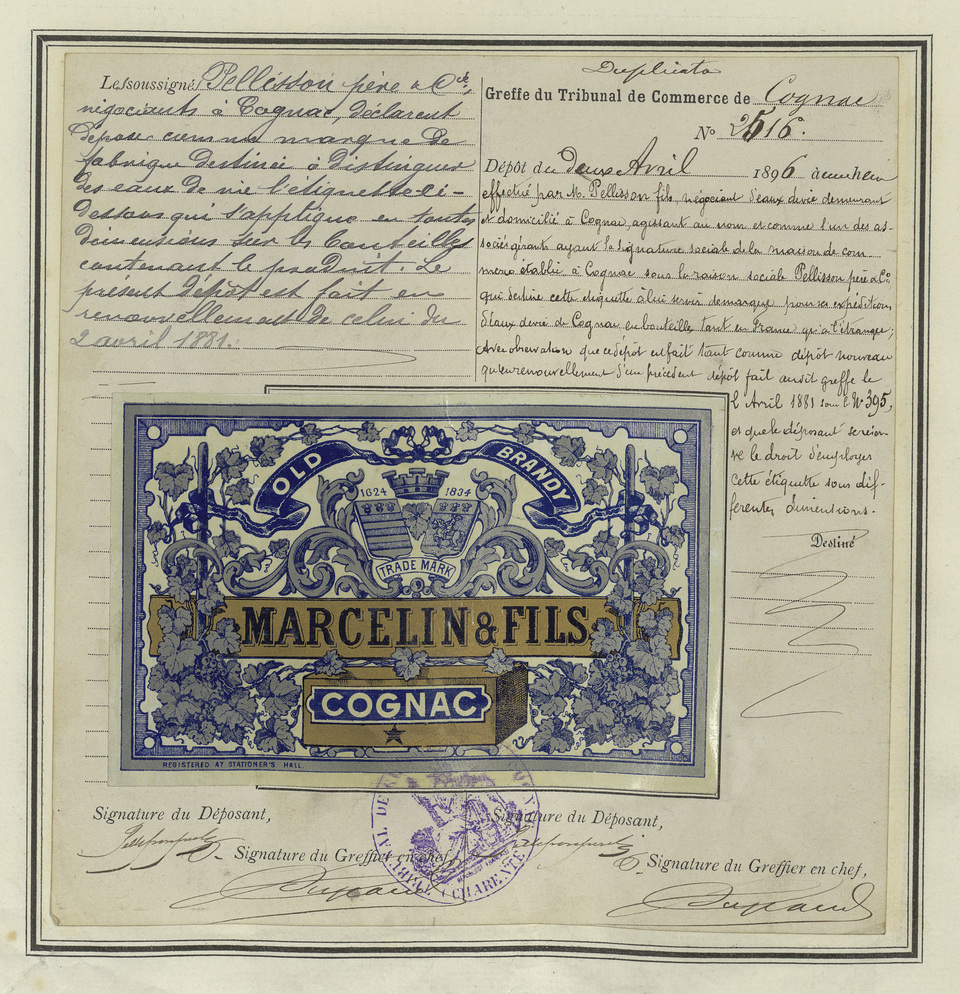 Les soussignés Pellisson père & Cie,
négociants à Cognac, déclarent
déposer comme marque de
fabrique destinée à distinguer
des eaux de vie l'étiquette ci-
dessous qui s'applique en toutes
dimensions sur les bouteilles
contenant le produit. Le
présent dépôt est fait en
renouvellement de celui du
2 avril 1881.
Duplicata
Greffe du Tribunal de Commerce de Cognac
No 2516.
Dépôt du deux Avril 1896 à une heure
effectué par M. Pellisson fils, négociant d'eaux de vie demeurant
et domicilié à Cognac, agissant au nom et comme l'un des as-
sociés gérants ayant la signature sociale de la maison de com
merce établie à Cognac sous la raison sociale Pellisson père & Co
qui destine cette étiquette à lui servir de marque pour ses expéditions
d'eaux de vie de Cognac en bouteilles tant en France qu'à l'étranger;
Avec observation que ce dépôt est fait tant comme dépôt nouveau
qu'en renouvellement d'un précédent dépôt fait audit greffe le
2 Avril 1881 sous le No 395,
et que le déposant se réser-
ve le droit d'employer
cette étiquette sous dif-
férentes dimensions.
Destiné
OLD BRANDY
1624 1834
TRADE MARK
MARCELIN & FILS
COGNAC
REGISTERED AT STATIONER'S HALL.
Signature du Déposant,
Signature du Déposant,
Signature du Greffier en chef,
Signature du Greffier en chef,
CHARENTE